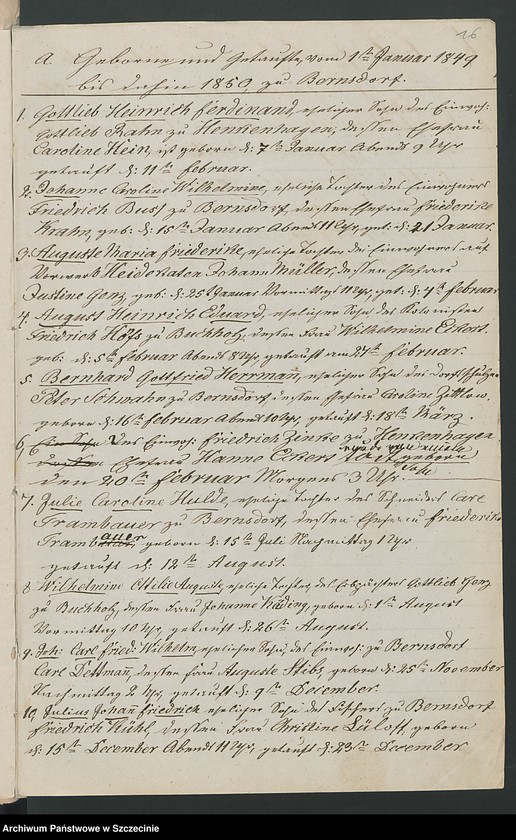 16
A. Geborne und Getaufte, vom 1ten Januar 1849
bis dahin 1850, zu Bernsdorf.
1. Gottlieb Heinrich Ferdinand, ehelicher Sohn des Einwoh:
Gottlieb Rahn zu Henkenhagen, dessen Ehefrau
Caroline Hein, ist geboren d: 7ten Januar Abends 9 Uhr
getauft d: 11ten Februar.
2. Johanne Caroline Wilhelmine, eheliche Tochter des Einwohners
Friedrich Buss zu Bernsdorf, dessen Ehefrau Friederike
Krahn, geb: d: 15ten Januar Abend 11 Uhr, get: d: 21 Januar.
3. Auguste Maria Friederike, eheliche Tochter des Einwohners auf
Vorwerk Heidekaten Johann Müller, dessen Ehefrau
Justine Genz, geb: d: 25t Januar Vormittag 11 Uhr, get: d: 4ten Februar
4. August Heinrich Eduard, ehelicher Sohn des Kolonisten
Friedrich zu Buchholz, dessen Frau Wilhelmine Eckert.
geb: d: 5ten Februar Abend 8 Uhr, getauft am 24ten Februar.
5. Bernhard Gottfried Herrmañ, ehelicher Sohn des Dorfschulzen
Peter Schwahn zu Bernsdorf, dessen Ehefrau Caroline Zittlow.
geboren d: 16ten Februar Abend 10 Uhr, getauft d: 18ten März.
6. Des Einwoh: Friedrich Zinke zu Henkenhagen
Ehefrau Hanne Eckert
den 20ten Februar Morgens 3 Uhr.
7. Julie Caroline Hulde, eheliche Tochter des Schneiders Carl
Trambauer zu Bernsdorf, dessen Ehefrau Friederike
Trambauer, geboren d: 15ten Juli Nachmittag 1 Uhr
getauft d: 12ten August.
8. Wilhelmine Ottilie Auguste, eheliche Tochter, des Erbpächters Gottlieb Genz
zu Buchholz, dessen Frau Johanne Käding, geboren d: 1ten August
Vormittag 10 Uhr, getauft d: 26ten August.
9. Joh: Carl Fried: Wilhelm, ehelicher Sohn, des Einwoh: zu Bernsdorf
Carl Dettmañ, dessen Frau Auguste Stibs, geboren d: 25ten November
Nachmittag 2 Uhr, getauft d: 9ten December.
10, Julius Johañ Friedrich ehelicher Sohn des Fischers zu Bernsdorf
Friedrich Kühl, dessen Frau Christine Lüloff, geboren
d: 15ten December Abend 11 Uhr, getauft d: 23ten December
Archiwum Państwowe w Szczecinie